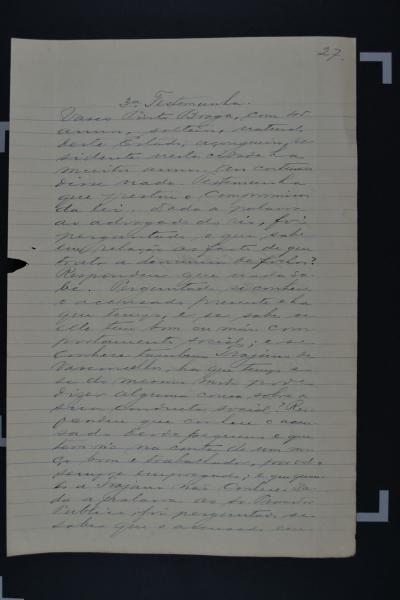 27.
3ª Testemunha.
Vasco Pinto Braga, com
annos, solteiro, natural
deste Estado, açougueiro, re
sidente nesta cidade ha
muitos annos. Aos costumes
disse nada. Testemunha
que prestou o compromisso
da lei. Dada a palavra
ao advogado do réo, foi
perguntado o que sabe
em relação ao facto de que
trata a denuncia de folhas?
Respondeu que nada sa
be. Perguntado si conhece
o accusado presente e ha
que tempo, e se sabe se
elle tem bom ou máo com
portamento social; e se
conhece tambem Trajano de
Vasconcellos, ha que tempo e
se do mesmo modo pode
dizer alguma cousa sobre a
sua conducta social? Res
pondeu que conhece o accu
sado desde pequeno e que
tem no na conta de um mo
ço bom e trabalhador,
sempre empregado; e que quan
to a Trajano não conhece. Da
da a palavra ao Dr. Promotor
Publico, foi perguntado se
sabe que o accusado